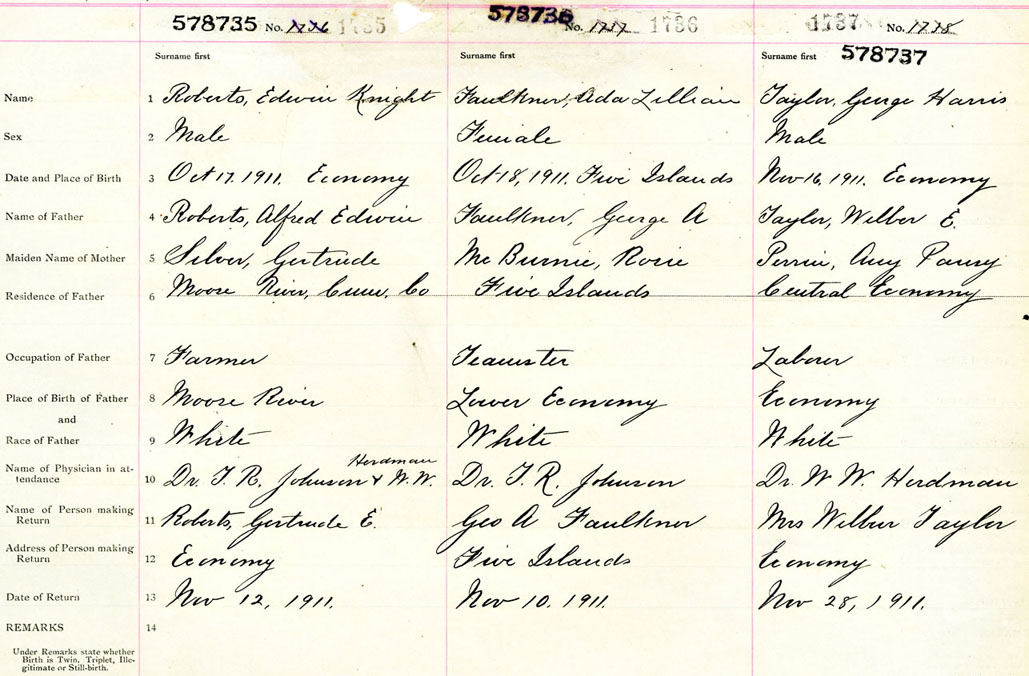 578735 No. 1736 1735 578736 No. 1737 1736 1737 No. 1738
Surname first Surname first Surname first 578737
Name 1 Roberts, Edwin Knight Faulkner, Ada Lillian Taylor, George Harris
Sex 2 Male Female Male
Date and Place of Birth 3 Oct 17. 1911. Economy Oct 18, 1911. Five Islands Nov 16, 1911. Economy
Name of Father 4 Roberts, Alfred Edwin Faulkner, George A Taylor, Wilber E.
Maiden Name of Mother 5 Silver, Gertrude Mc Burnie, Rosie Perrin, Amy Pansy
Residence of Father 6 Moose River, Cum. Co Five Islands Central Economy
Occupation of Father 7 Farmer Teamster Laborer
Place of Birth of Father 8 Moose River Lower Economy Economy
and
Race of Father 9 White White White
Herdman
Name of Physician in at-
tendance 10 Dr. T. R. Johnson & W. W. Dr. T. R. Johnson Dr. W W. Herdman
Name of Person making
Return 11 Roberts, Gertrude E. Geo A Faulkner Mrs Wilbur Taylor
Address of Person making
Return 12 Economy Five Islands Economy
Date of Return 13 Nov 12, 1911. Nov 10. 1911. Nov 28, 1911.
REMARKS 14
Under Remarks state whether
Birth is Twin. Triplet, Ille-
gitimate or Still-birth.